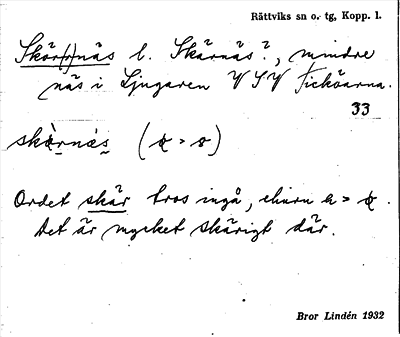 Rättviks sn o. tg, Kopp. l.
Skör(r)näs l. Skärnäs?, mindre
näs i Ljugaren VSV Fisköarna.
33
skèrnás (ɵ > ö)
Ordet skär tros ingå, ehuru ä > ɵ.
Det är mycket skärigt där.
Bror Lindén 1932